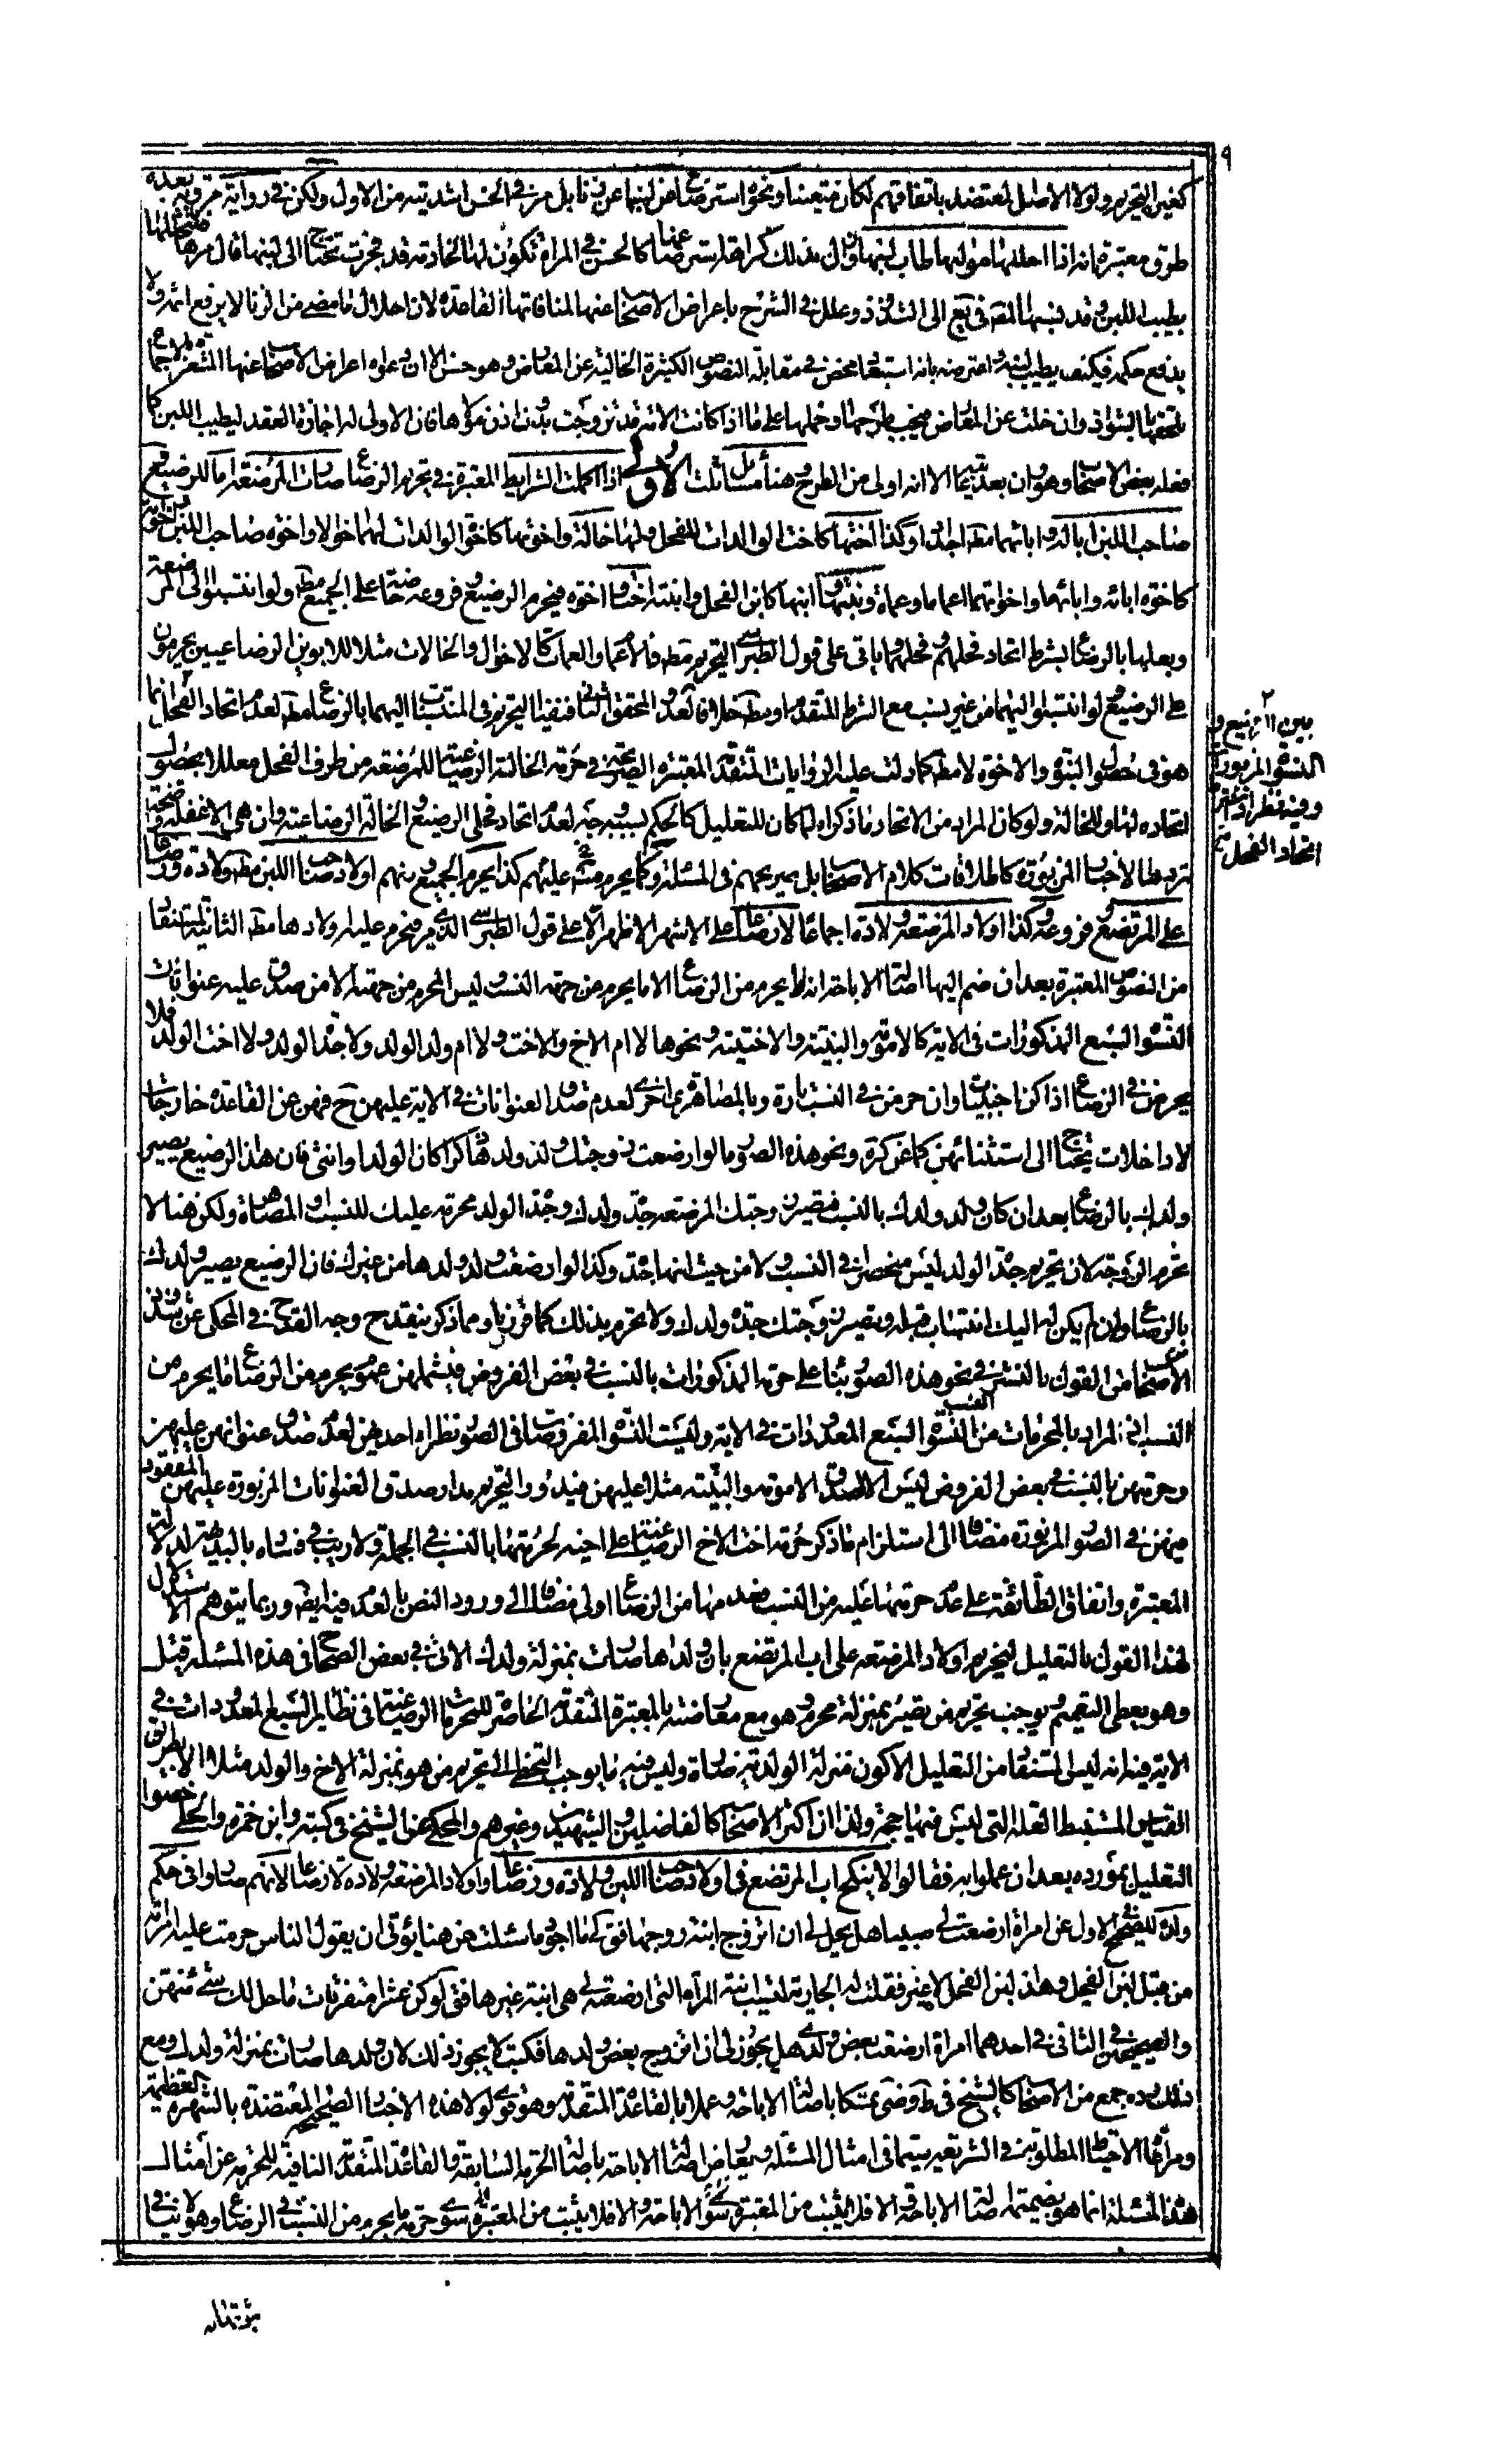 كغير التحريم ولولا الاصل المعتضد باتفاقهم لكان متعينا ونحوه استرضاع من لبنها عن زنا بل مر في الحسن اشديته من الاول ولكن في رواية مروية بعدة
طرق معتبرة انه اذا احلها مولاها طاب لبنها وان بذلك كراهة استرضاعها كالحسن في المراة تكون لها الخادمة قد فجرت تحتاج الى لبنها قال مرها فلتحللها
يطيب اللبن وقد نسبها المقه في يع الى الشذوذ وعلل في الشرح باعراض الاصحاب عنها لمنافاتها القاعدة لان احلال ما مضى من الزنا لا يرفع اثمه ولا
يدفع حكمه فكيف يطيب لبنه واعترضه بانه استبعاد محض في مقابلة النصوص الكثيرة الخالية عن المعارض وهو حسن الا ان دعواه اعراض الاصحاب عنها المشعر بالاجماع
يلحقها بالشواذ وان خلت عن المعارض فيجب طرحها او حملها على ما اذا كانت الامة قد تزوجت بدون اذن مولاها فان الاولى له اجازة العقد ليطيب اللبن كما
فعله بعض الاصحاب وهو وان بعد الا انه اولى من الطرح وهنا مسائل ثلث الاولى اذا كملت الشرايط المعتبرة في تحريم الرضاع صارت المرضعة اما للرضيع و
صاحب اللبن ابا له وابائهما مطه اجدادا وكذا اختها كاخت الوالدات للفحل ولها خالة واخوتها كاخوة الوالدات لهما اخوالا واخوة صاحب اللبن
كاخوة ابائه وابائهما واخواتهما اعماما وعمات وبنتها وابنها كابن الفحل وابنته اختا واخوه فيحرم الرضيع وفروعه خاصة على الجميع مطه ولو انتسبوا الى المرضعة
وبعلها بالرضاع بشرط اتحاد فحلهم وفحلهما باقى على قول الطبرسي التحريم مطه فالاعمام والعمات كالاخوال والخالات مثلا للابوين الرضاعيين يحرمون
على الرضيع لو انتسبوا اليهما من غير نسب مع الشرط المتقدم او مطه خلافا للعد والمحقق الثاني فنفيا التحريم في المنتسب اليهما بالرضاع مطه لعدم اتحاد الفحل انما
هو في حصول البنوة والاخوة لا مطه كما دلت عليه الروايات المتقدمة المعتبرة الصريحة في حرمة الخالة الرضاعية للمرضعة من طرف الفحل معللا بحصول
اتحاده لها وللخالة ولو كان المراد من الاتحاد ما ذكراه لما كان للتعليل كالحكم بسببه وجه لعدم اتحاد فحلى الرضيع والخالة الرضاعية وان هي الا غفلة واضحة
ترد بها الاخبار المزبورة كاطلاقات كلام الاصحاب بل صريحهم في المسئلة وكما يحرم عليهم كذا يحرم الجميع منهم اولاد صاحب اللبن مطه ولادة ورضاعا
على المرتضع وفروعه وكذا اولاد المرضعة ولادة اجماعا لا رضاعا على الاشهر الاظهر الا على قول الطبرسي الذي مر فيحرم عليه اولادها مطه الثانية المستفاد
من النصوص المعتبرة بعد ان ضم اليها اصالة الاباحة انه لا يحرم من الرضاع الا ما يحرم من جهة النسب وليس المحرم من جهته الا من صدق عليه عنوانات
النسوة السبع المذكورات في الاية كالامومة والبنتية والاختية ونحوها لا ام الاخ والاخت ولا ام ولد الولد ولا جدة الولد ولا اخت الولد فلا
يحرمن في الرضاع اذا كن اجنبيات وان حرمن في النسب تارة وبالمصاهرة اخرى لعدم صدق العنوانات في الاية عليهن ح فهن عن القاعدة خارجات
لا داخلات يحتاج الى استثنائهن كما عن كرة ونحو هذه الصور ما لو ارضعت زوجتك ولد ولدها ذكرا كان الولد او انثى فان هذا الرضيع يصير
ولدك بالرضاع بعد ان كان ولد ولدك بالنسب فتصير زوجتك المرضعة جدة ولدك وجدة الولد محرمة عليك للنسب او المصاهرة ولكن هنا لا
تحرم الزوجة لان تحريم جدة الولد ليس منحصرا في النسب ولا من حيث انها جدة وكذا لو ارضعت ولد ولدها من غيرك فان الرضيع يصير ولدك
بالرضاع وان لم يكن له اليك انتساب قبله وتصير زوجتك جدة ولدك ولا تحرم بذلك كما قرناه ومما ذكر ينقدح وجه القدح في المحكى عن شذوذ
من الاصحاب من القول بالنشر في نحو هذه الصور بناء على حرمة المذكورات بالنسب في بعض الفروض فيشملهن عموم يحرم من الرضاع ما يحرم من
النسب اذ المراد بالمحرمات من النسب النسوة السبع المعدودات في الاية وليست النسوة المفروضات في الصور نظراء احديهن لعدم صدق عنوانهن عليهن
وحرمتهن بالنسب في بعض الفروض ليس الا لصدق الامومة والبنتية مثلا عليهن فيدور التحريم مدار صدق العنوانات المزبورة عليهن المفقود
فيهن في الصور المزبورة مضافا الى استلزام ما ذكر حرمة اخت الاخ الرضاعية على اخيه لحرمتها بالنسب في الجملة ولا ريب في فساده بالبديهة لدلالتها
المعتبرة واتفاق الطائفة على عدم حرمتها عليه من النسب فعدمها من الرضاع اولى مضافا الى ورود النص بالعدم فيه ايضه وربما يتوهم الاستدلال
لهذا القول بالتعليل لتحريم اولاد المرضعة على اب المرتضع بان ولدها صارت بمنزلة ولدك الاتى في بعض الصحاح في هذه المسئلة قبل
وهو يعطى التعميم ويوجب تحريم من يصير بمنزلة محرم وهو مع معارضته بالمعتبرة المتقدمة الحاصرة للمحرمات الرضاعية في نظاير السبع المعدودات في
الاية فيه انه ليس المستفاد من التعليل الا كون منزلة الولدية ضارة وليس فيه ما يوجب التخطى الى تحريم من هو بمنزلة الاخ والولد مثلا الا بطريق
القياس المستنبط العلة التى ليس فيها حجة ولذا ان اكثر الاصحاب كالفاضلين والشهيدين وغيرهم والمحكى عن الشيخ في كتبه وابن حمزة والحلى خصوا
التعليل بمورده بعد ان عملوا به فقالوا لا ينكح اب المرتضع في اولاد صاحب اللبن ولادة ورضاعا واولاد المرضعة ولادة لا رضاعا لانهم صاروا في حكم
ولده للصحيح الاول عن امراة ارضعت لى صبيا هل يحل لى ان اتزوج ابنة زوجها فقال لى ما اجود ما سئلت من هنا يؤتى ان يقول الناس حرمت عليه امراته
من قبل لبن الفحل وهذا لبن الفحل لا غير فقلت له الجارية ليست ابنة المراة التى ارضعت لى هى ابنة غيرها فق لو كن عشرا متفرقات ما حل لك شئ منهن
والصحيحين الثانى في احدهما امراة ارضعت بعض ولدى هل يجوز لى ان اتزوج بعض ولدها فكتب لا يجوز ذلك لان ولدها صارت بمنزلة ولدك ومع
ذلك رده جمع من الاصحاب كالشيخ في ط وضى تمسكا باصالة الاباحة وعملا بالقاعدة المتقدمة وهو قوى لولا هذه الاخبار الصحيحة المعتضدة بالشهرة العظيمة
ومراعاة الاحتياط المطلوبة في الشريعة سيما في امثال المسئلة ويعارض اصالة الاباحة باصالة الحرمة السابقة والقاعدة المتقدمة النافية للحرمة عن امثال
هذه المسئلة انما هو بضميمة اصالة الاباحة والا فلا يثبت من المعتبرة سوى حرمة ما يحرم من النسب في الرضاع وهو لا ينافى
٢
بين الرضيع و
النسوة المزبورة
وفيه نظر اذ
اتحاد الفحل
٩